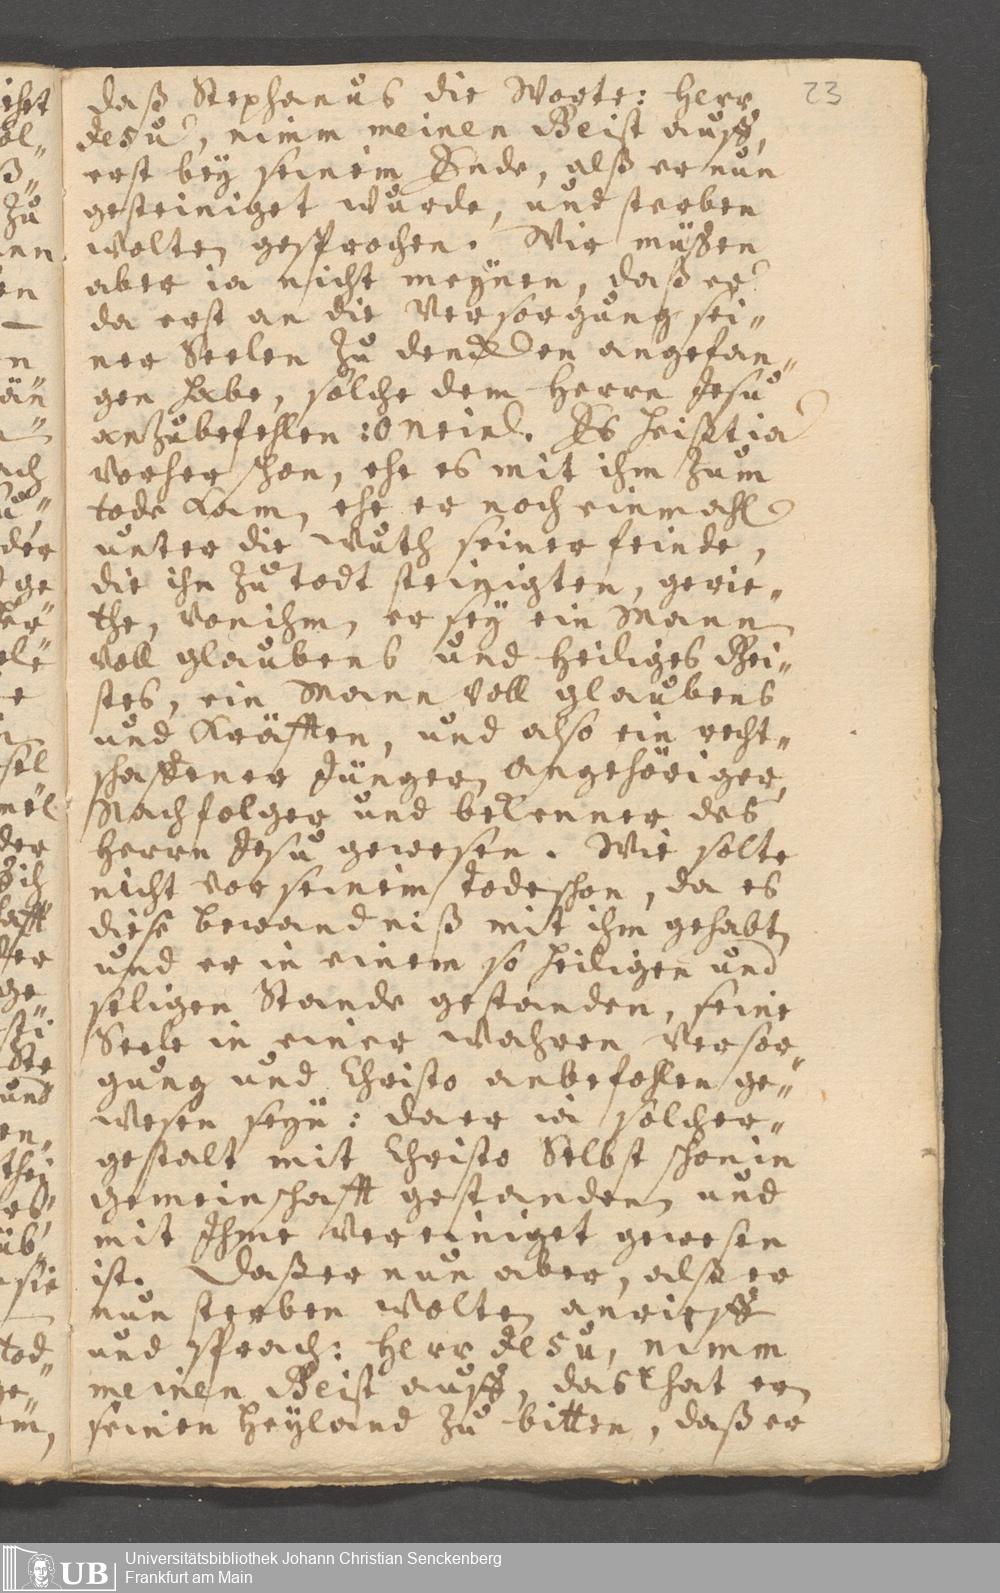 23
daß Stephanus die Worte: Herr
Jesu, nimm meinen Geist auff,
erst bey seinem Ende, alß er nun
gesteiniget wurde, und sterben
wolte, gesprochen. Wir müßen
aber ia nicht meynen, daß er
da erst an die Versorgung sei„
ner Seelen zu dencken angefan„
gen habe, solche dem Herrn Jesu
anzubefehlen: O nein. Es heisst ia
vorher schon, ehe es mit ihm zum
tode kam, ehe er noch einmahl
unter die Wuth seiner feinde,
die ihn zu todt steinigten, gerie„
the, von ihm, er sey ein Mann
voll glaubens und Heiliges Gei„
stes, ein Mann voll glaubens
und Kräfften, und also ein recht„
schaffener Jünger, Angehöriger,
Nachfolger und bekenner des
Herrn Jesu gewesen. Wie solte
nicht vor seinem tode schon, da es
diese bewandniß mit ihm gehabt,
und er in einem so heiligen und
seligen Stande gestanden, seine
Seele in einer wahren Versor„
gung und Christo anbefohlen ge„
wesen seyn: da er ia solcher„
gestalt mit Christo Selbst schon in
gemeinschafft gestanden, und
mit Ihme vereiniget gewesen
ist. Daß er nun aber, alß er
nun sterben wolte, anrieff
und sprach: Herr Jesu, nimm
meinen Geist auff, das that er,
seinen Heyland zu bitten, daß er
UB
Universitätsbibliothek Johann Christian Senckenberg
Frankfurt am Main